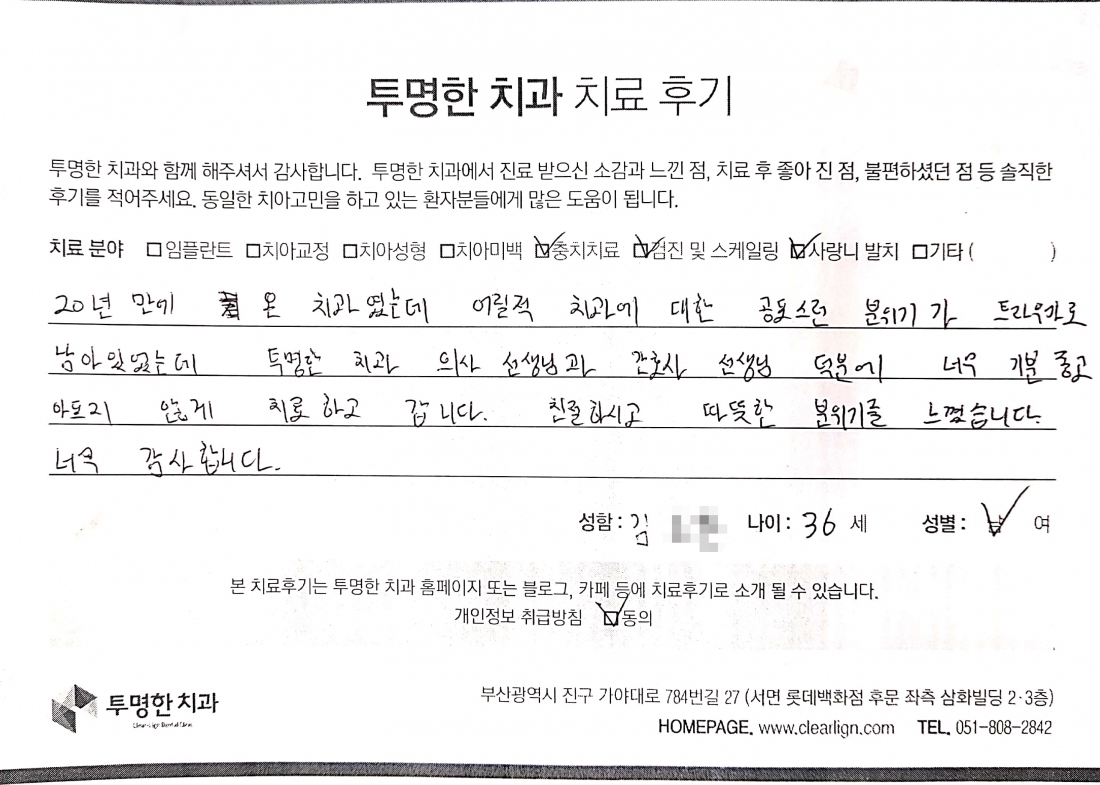 투명한 치과 치료 후기
투명한 치과와 함께 해주셔서 감사합니다. 투명한 치과에서 진료 받으신 소감과 느낀 점, 치료 후 좋아 진 점, 불편하셨던 점 등 솔직한
후기를 적어주세요. 동일한 치아고민을 하고 있는 환자분들에게 많은 도움이 됩니다.
치료 분야 □임플란트 □치아교정 □치아성형 □치아미백 ☑충치치료 ☑검진 및 스케일링 ☑사랑니 발치 □기타 ( )
20년 만에 온 치과였는데 어릴적 치과에 대한 공포스런 분위기가 트라우마로
남아있었는데 투명한 치과 의사 선생님과 간호사 선생님 덕분에 너무 기분 좋고
아프지 않게 치료하고 갑니다. 친절하시고 따뜻한 분위기를 느꼈습니다.
너무 감사합니다.
성함 : 김 나이 : 36 세 성별 : 남 여
본 치료후기는 투명한 치과 홈페이지 또는 블로그, 카페 등에 치료후기로 소개 될 수 있습니다.
개인정보 취급방침 ☑동의
투명한 치과
부산광역시 진구 가야대로 784번길 27 (서면 롯데백화점 후문 좌측 삼화빌딩 2·3층)
HOMEPAGE. www.clearlign.com TEL. 051-808-2842